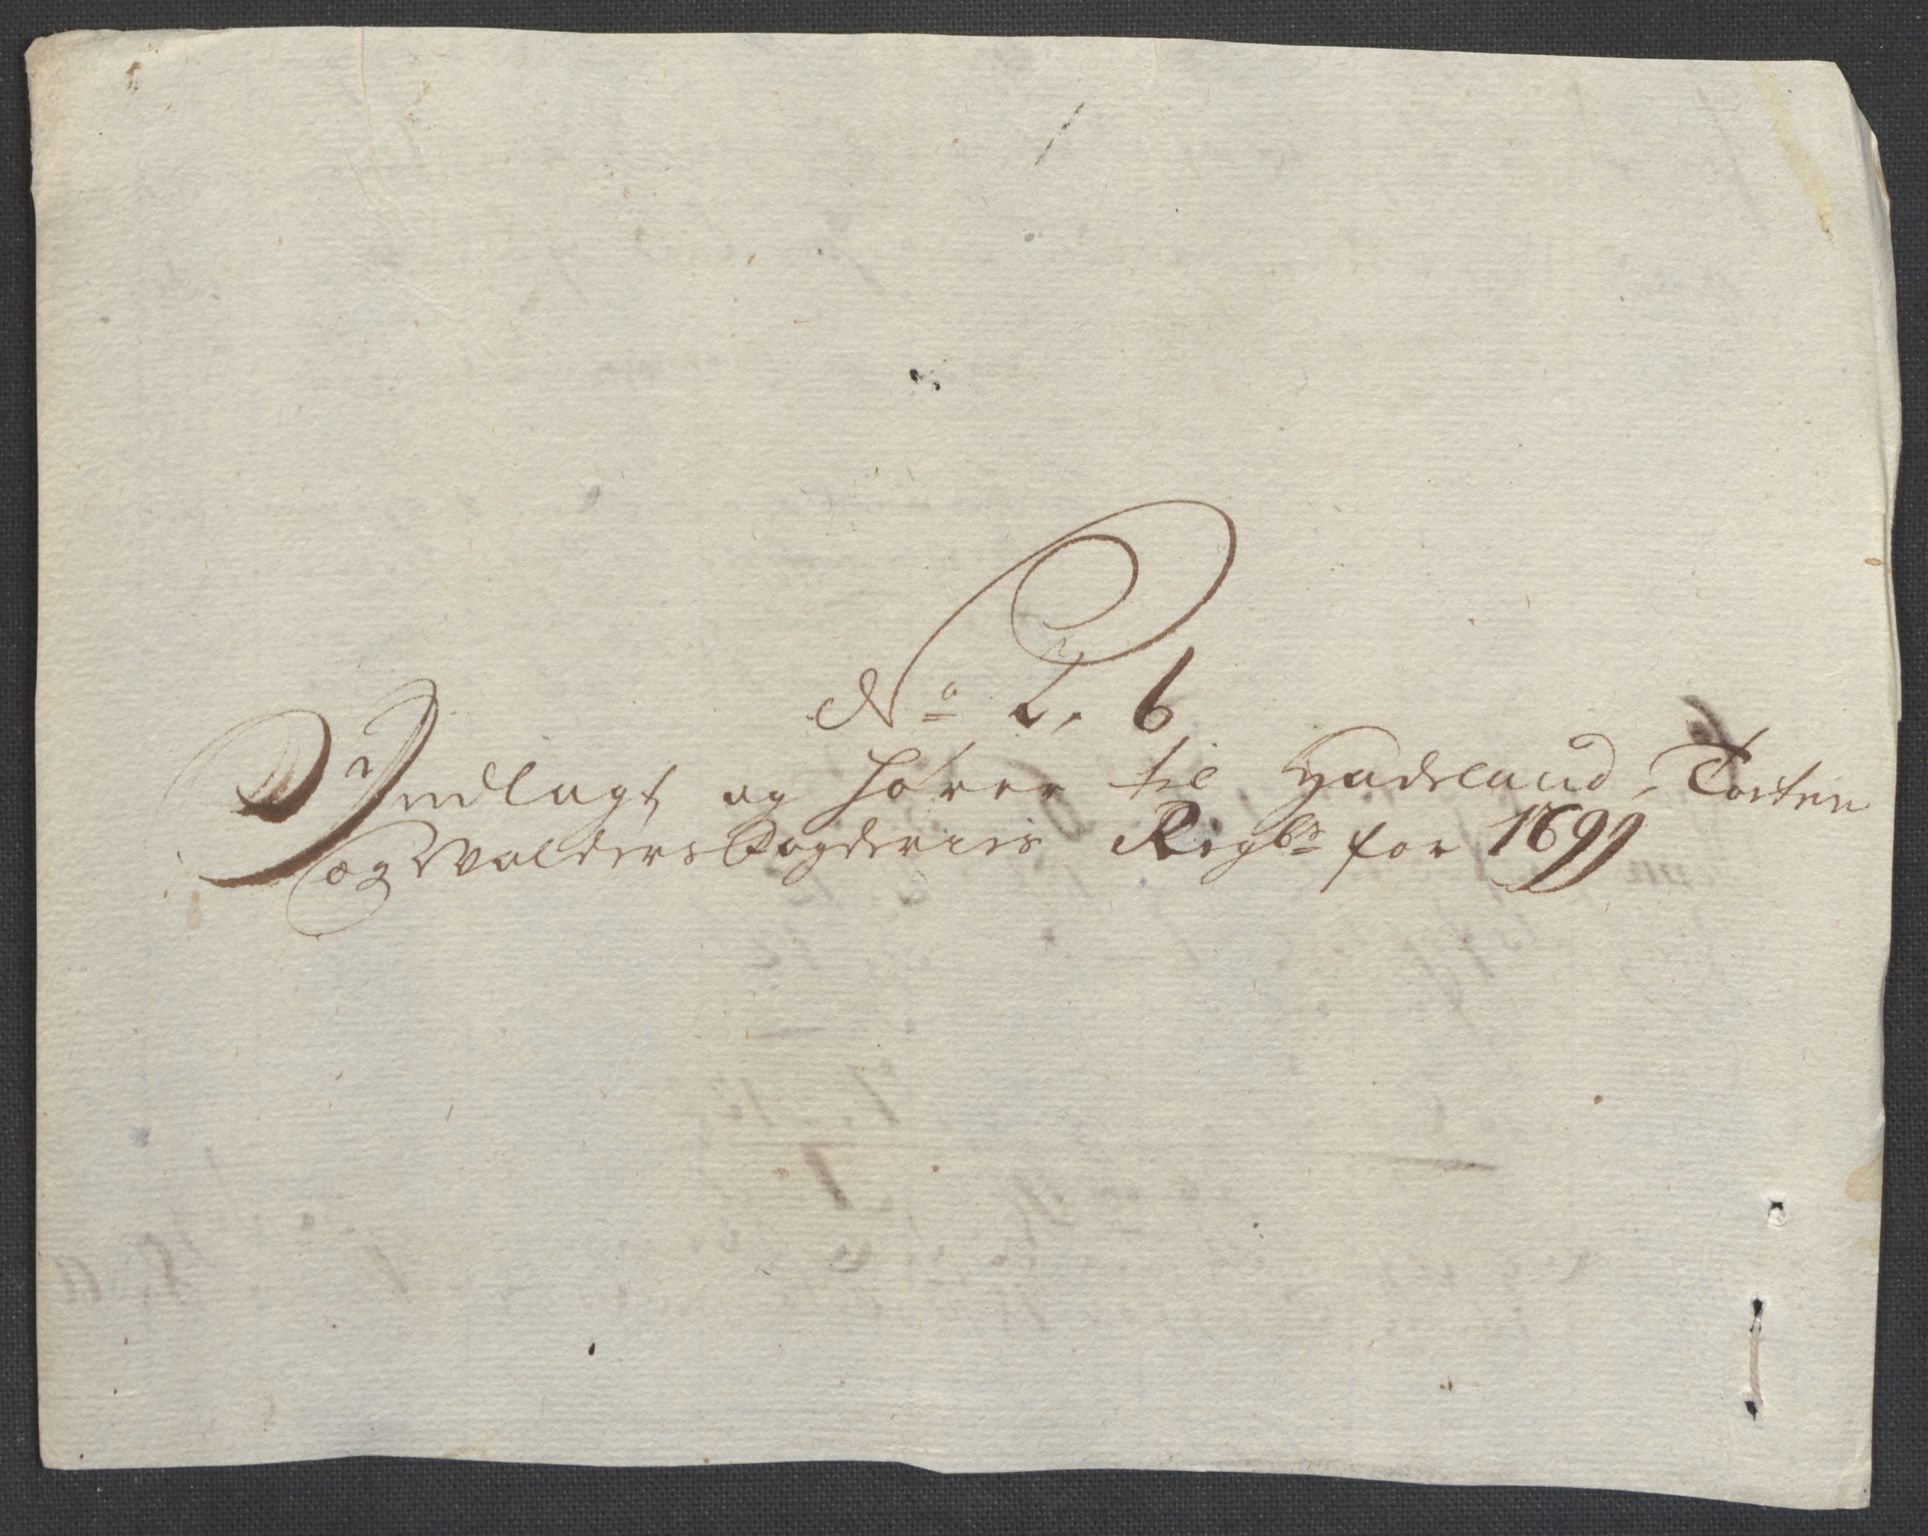 No 2. 6
Indlagt og hører til Hadeland, Totten
og Walders Fogderies Regbs for 1699